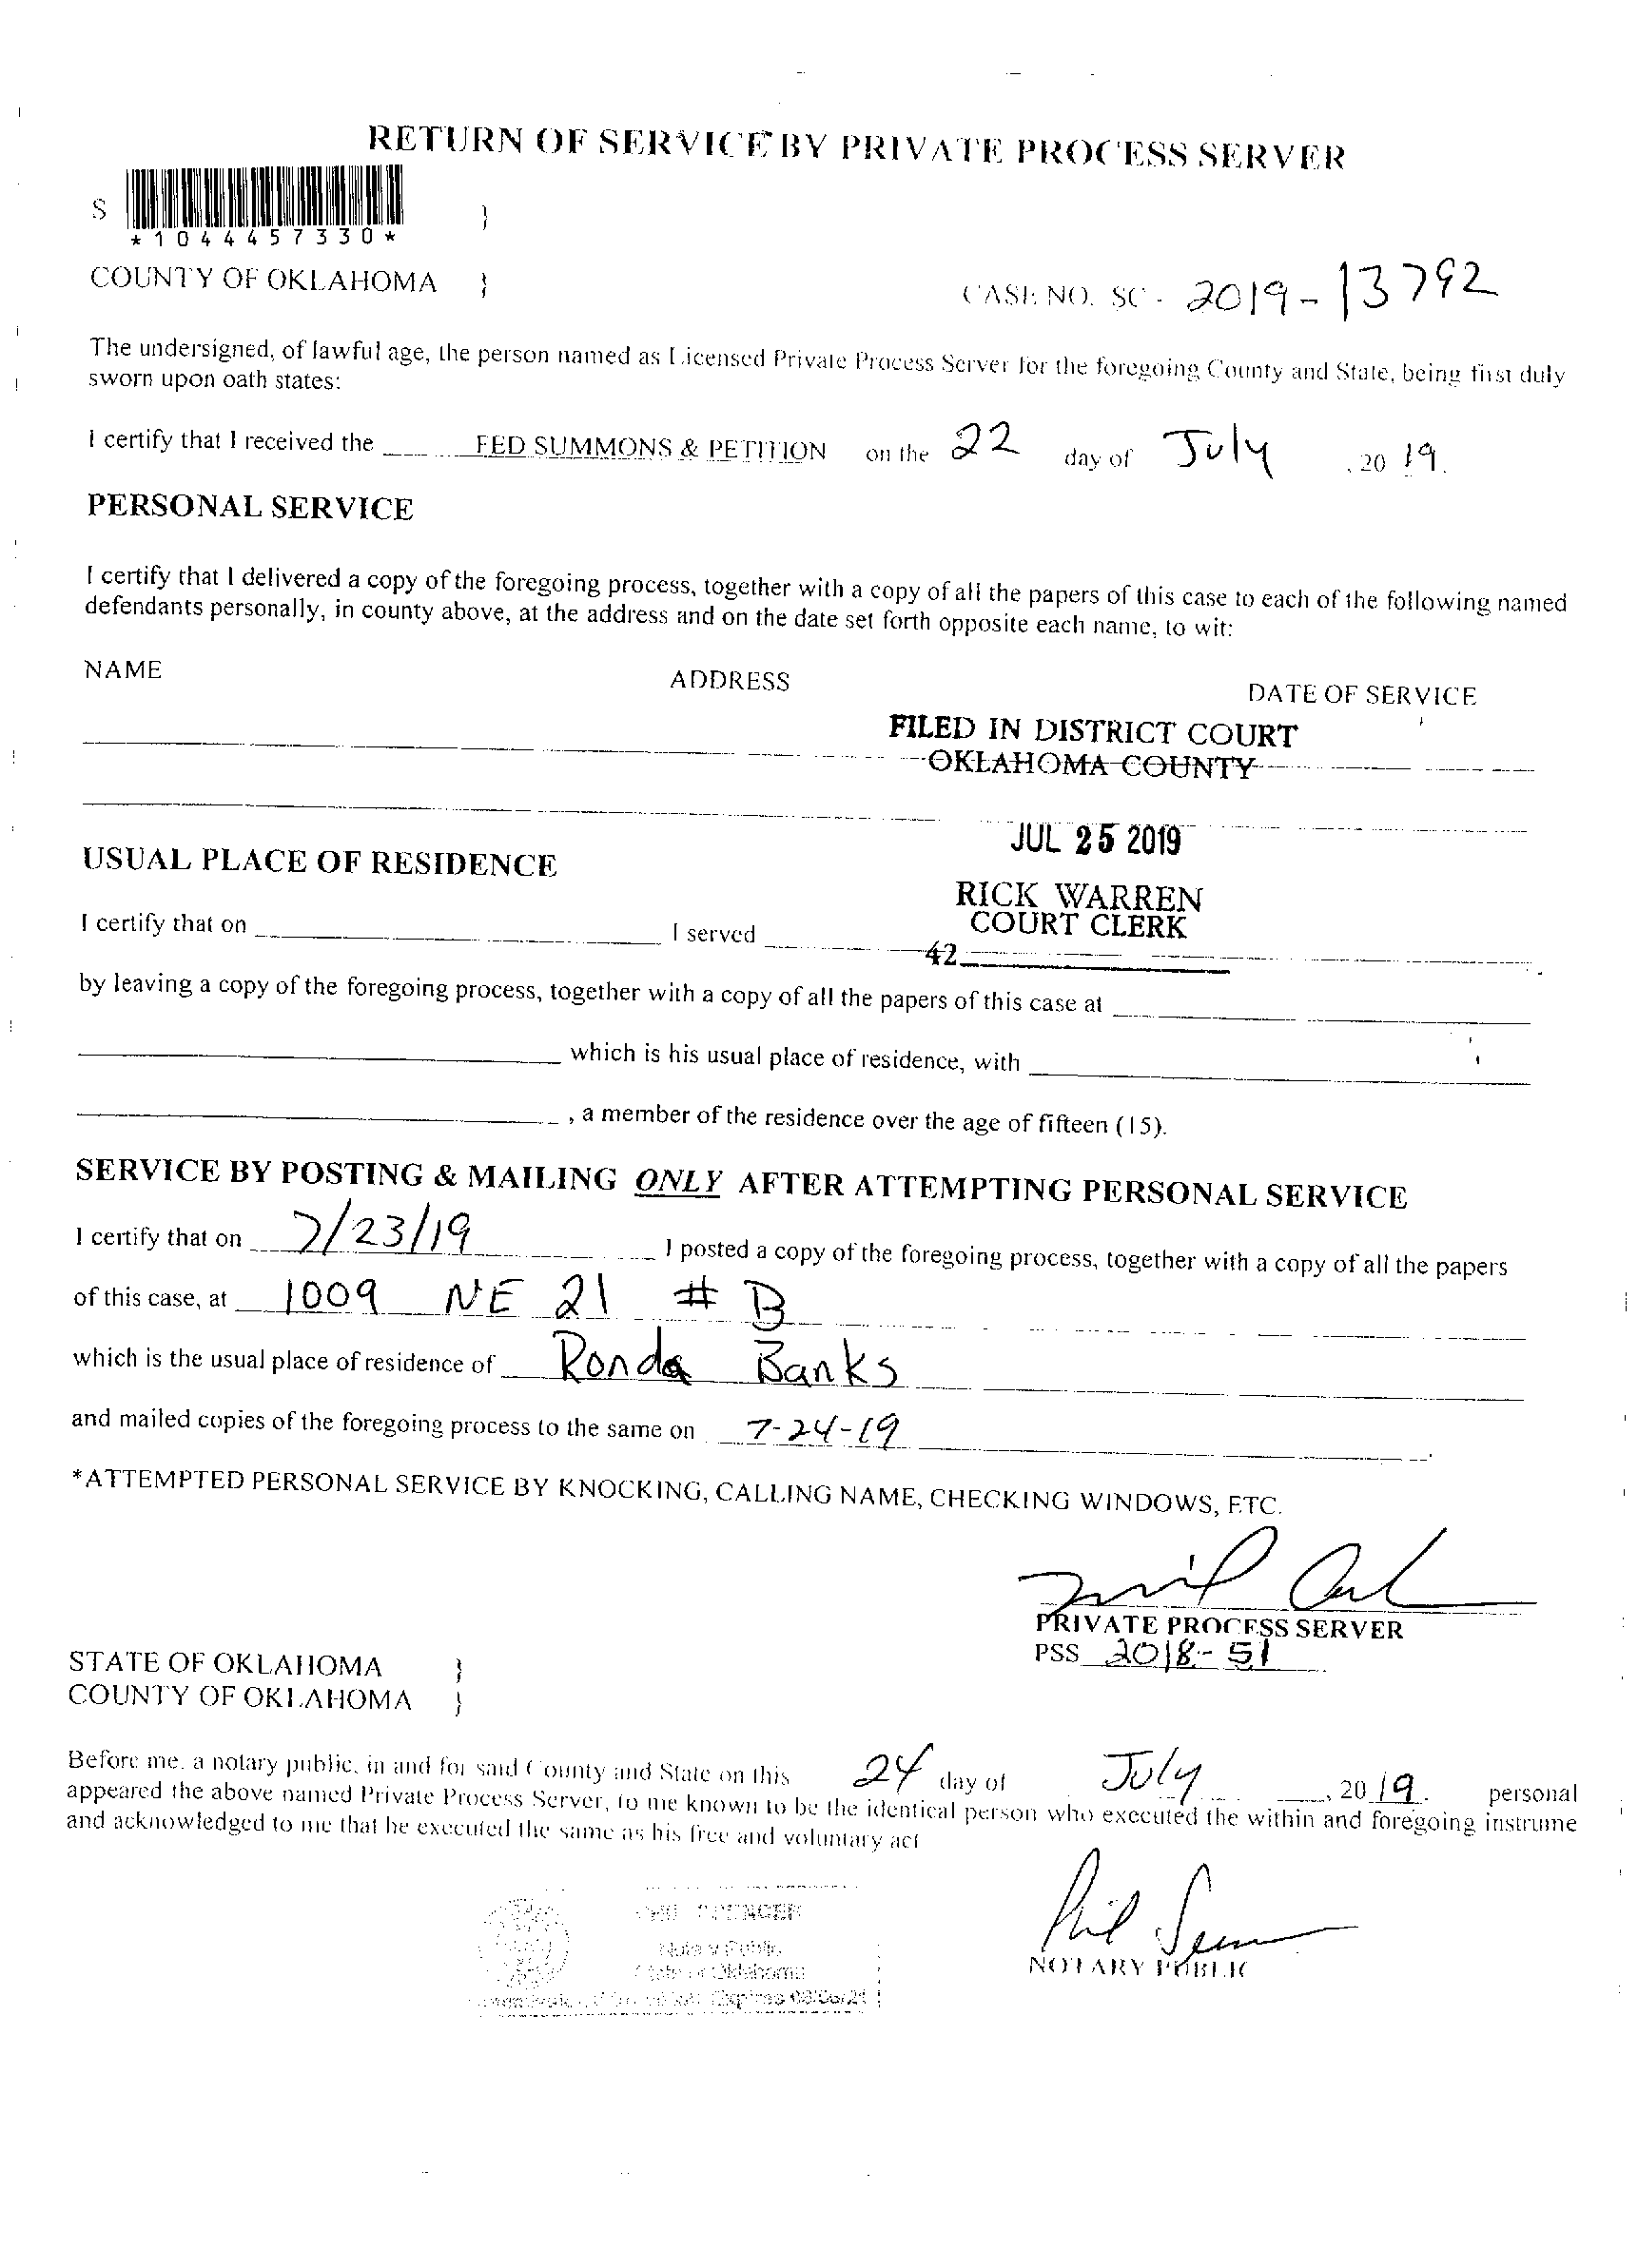 RETURN OF SERVICE BY PRIVATE PROCESS SERVER
S }
*1044457330*
COUNTY OF OKLAHOMA } CASE NO. SC - 2019-13792
The undersigned, of lawful age, the person named as Licensed Private Process Server for the foregoing County and State, being first duly
sworn upon oath states:
I certify that I received the FED SUMMONS & PETITION on the 22 day of July , 20 19.
PERSONAL SERVICE
I certify that I delivered a copy of the foregoing process, together with a copy of all the papers of this case to each of the following named
defendants personally, in county above, at the address and on the date set forth opposite each name, to wit:
NAME ADDRESS DATE OF SERVICE
FILED IN DISTRICT COURT
OKLAHOMA COUNTY
JUL 25 2019
USUAL PLACE OF RESIDENCE
RICK WARREN
COURT CLERK
I certify that on I served
42
by leaving a copy of the foregoing process, together with a copy of all the papers of this case at
which is his usual place of residence, with
, a member of the residence over the age of fifteen (15).
SERVICE BY POSTING & MAILING ONLY AFTER ATTEMPTING PERSONAL SERVICE
I certify that on 7/23/19 I posted a copy of the foregoing process, together with a copy of all the papers
of this case, at 1009 NE 21 # B
which is the usual place of residence of Ronda Banks
and mailed copies of the foregoing process to the same on 7-24-19
*ATTEMPTED PERSONAL SERVICE BY KNOCKING, CALLING NAME, CHECKING WINDOWS, ETC.
PRIVATE PROCESS SERVER
PSS 2018-51
STATE OF OKLAHOMA }
COUNTY OF OKLAHOMA }
Before me, a notary public, in and for said County and State on this 24 day of July , 20 19. personal
appeared the above named Private Process Server, to me known to be the identical person who executed the within and foregoing instrume
and acknowledged to me that he executed the same as his free and voluntary act
Notary Public
State of Oklahoma
Expires
NOTARY PUBLIC